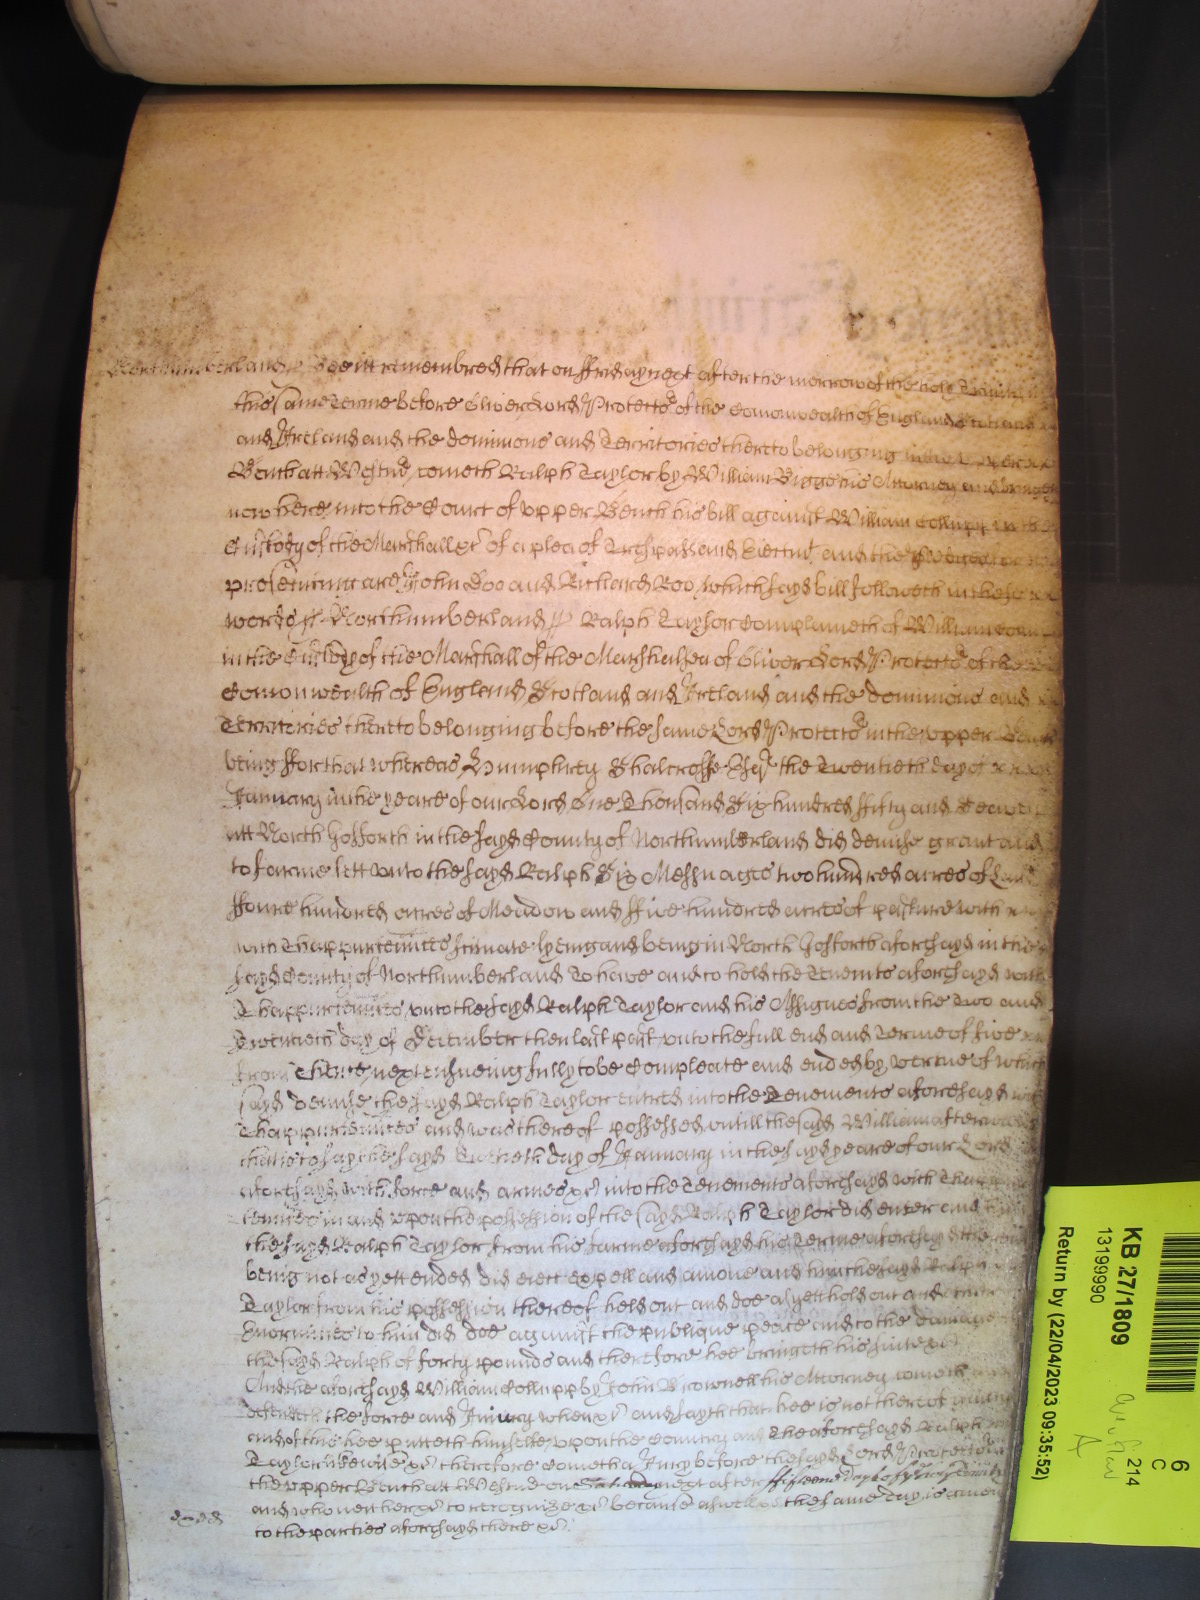 Northumberland Bee itt remembred that on ffriday next after the morrow of the holy Trinity
this same Terme before Oliver Lord Protector of the Comonwealth of England Scotland
and Ireland and the dominions and Territories thereto belonging in the upper
Bench att Westmr cometh Ralph Taylor by William Biggs his Attorney and bringeth
now here into the Court of upper Bench his bill against William Collupp in the
Custody of the Marshall &c of a plea of Trespas and Eiectmt and the pledges
prosecuting are John Doo and Richard Roo which sayd bill followeth in these
words ss Northumberland ss Ralph Taylor complaineth of William
in the Custody of the Marshall of the Marshalsea of Oliver Lord Protector of the
Comonwealth of England Scotland and Ireland and the dominions and
Territories thereto belonging before the same Lord Protector in the upper Bench
being ffor that whereas Humphrey Shalcrosse Esqr the Twentieth day of
January in the yeare of our Lord One Thousand Six hundred ffifty and
att North Gosforth in the sayd County of Northumberland did demise grant and
to farme lett unto the sayd Ralph Six Messuages two hundred acres of Land
ffoure hundred acres of Meadow and ffive hundred acres of pasture with
with Thappurtennces scituate lyeing and being in North Gosforth aforesayd in the
sayd County of Northumberland To have and to hold the Tenemts aforesayd with
Thappurtennces unto the sayd Ralph Taylor and his Assignes from the Two and
Twentieth day of December then last past unto the full end and Terme of five
from thence next ensueing fully to be Compleate and ended by vertue of which
sayd demise the sayd Ralph Taylor entred into the Tenements aforesayd with
Thappurtennces and was thereof possessed untill the sayd William afterwards
that is to say the sayd Twentieth day of January in the sayd yeare of our Lord
aforesayd with force and armes &c into the Tenements aforesayd with
in and upon the possession of the sayd Ralph Taylor did enter and
the sayd Ralph Taylor from his farme aforesayd his Terme aforesayd
being not as yett ended did eiect expell and amove and him the sayd Ralph
Taylor from his possession thereof held out and doe as yett hold out and
Enormities to him did doe against the publique peace and to the damage
the sayd Ralph of forty pounds and therefore hee bringeth his suite &c
And the aforesayd William Collupp by John Brownell his Attorney cometh and
defendeth the force and Iniury when &c and sayth that hee is not thereof
and of this hee putteth himselfe upon the Country and the aforesayd Ralph
Taylor likewise &c therefore cometh a Jury before the sayd Lord Protector in
the upper Bench att Westmr on next after ffifteene dayes of the holy Trinity
and who neither &c to recognize &c because aswell &c the same day is given
to the parties aforesayd there &c
KB 27/1809
13199990
Return by (22/04/2023 09:35:52)
6
C
214
A